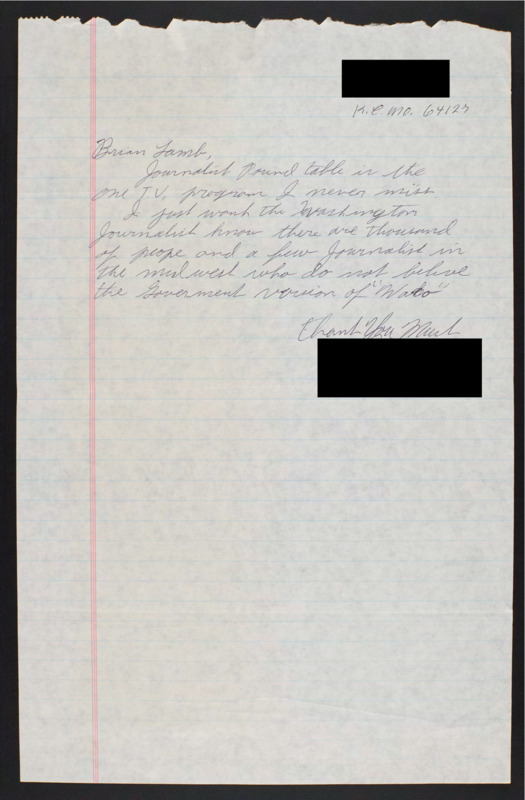 K.C. Mo. 64127
Brian Lamb,
Journalist Round table is the
one TV. program I never miss.
I just want the Washington
Journalist know there are thousand
of peope and a few Journalist in
the midwest who do not belive
the Goverment version of "Wako"
Thank You Much